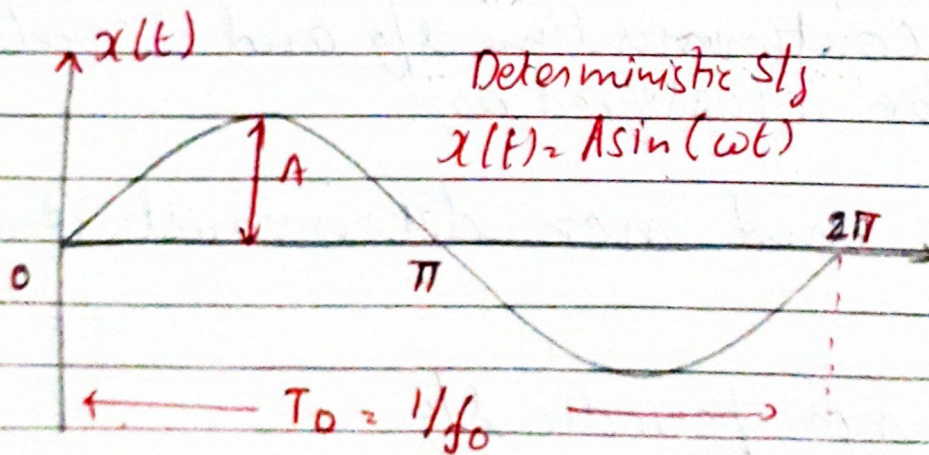 x(t)
Deterministic s/g
x(t) = A sin(ωt)
A
0
π
2π
T0 = 1/f0